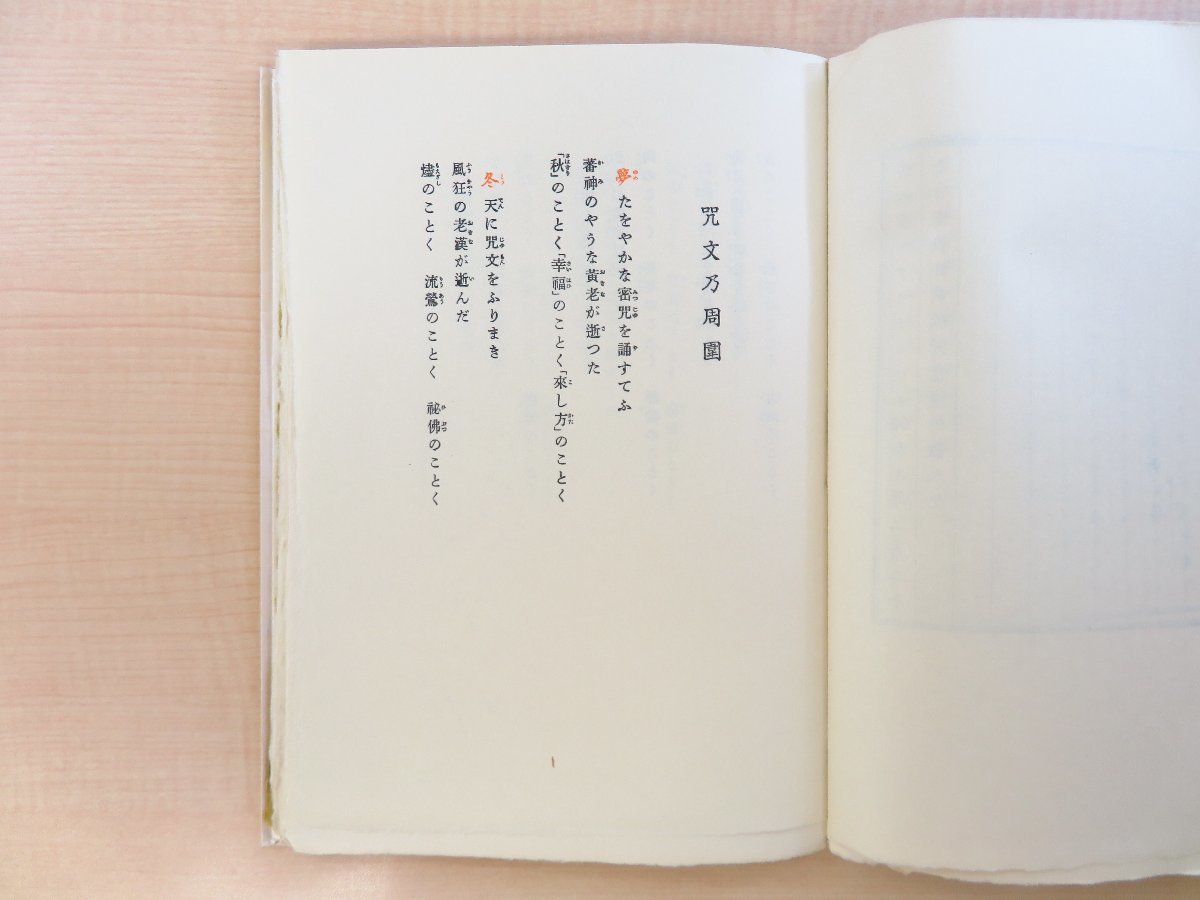 咒文乃周圍
夢たをやかな密咒を誦すてふ
蕃神のやうな黃老が逝つた
「秋」のことく「幸福」のことく「來し方」のことく
冬天に咒文をふりまき
風狂の老漢が逝んだ
燼のことく　流鶯のことく　祕佛のことく